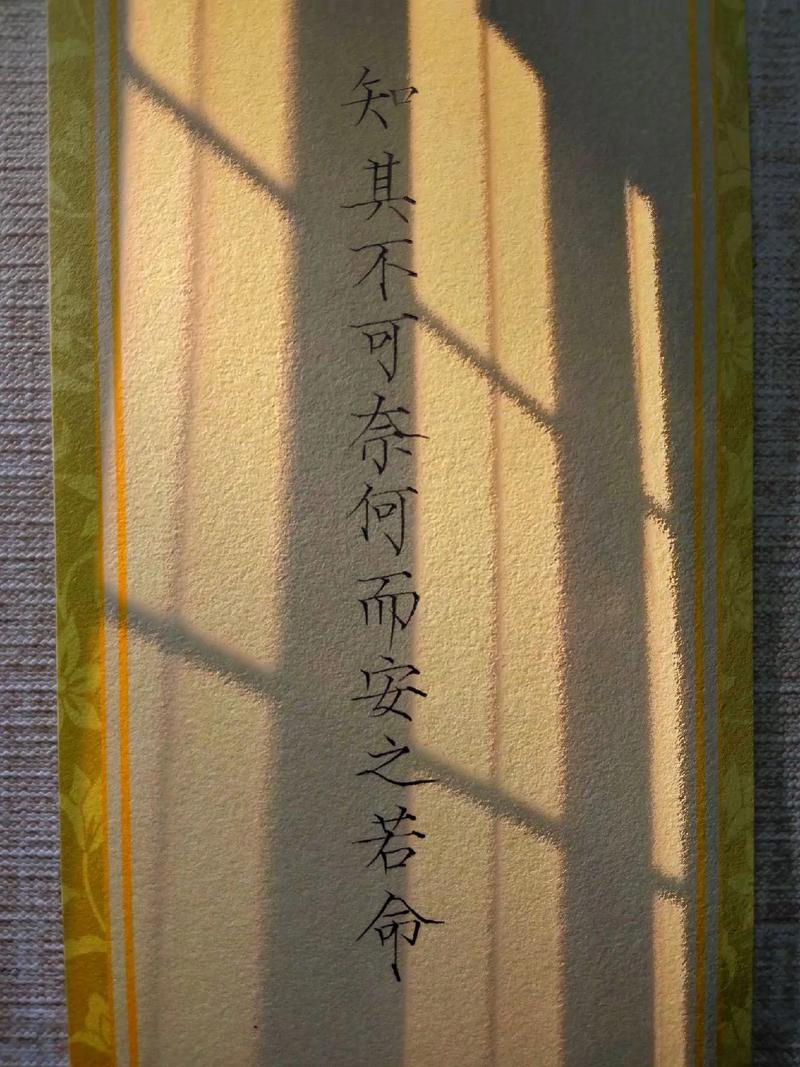 知其不可奈何而安之若命